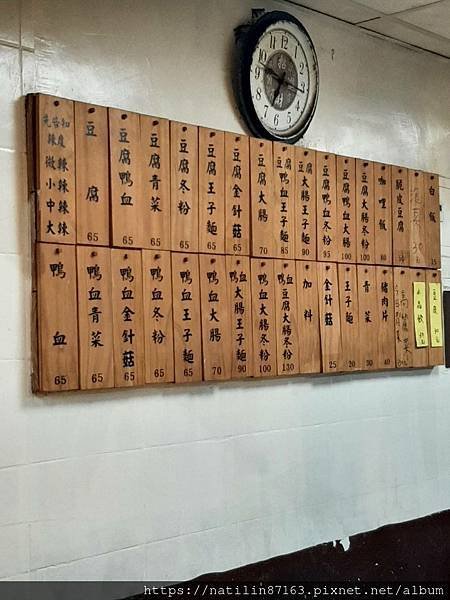 先告知
辣度
微辣
小辣
中辣
大辣
豆腐 65
豆腐鴨血 65
豆腐青菜 65
豆腐冬粉 65
豆腐王子麵 65
豆腐金針菇 65
豆腐大腸 70
豆腐鴨血王子麵 85
豆腐大腸王子麵 90
豆腐鴨血冬粉 95
豆腐鴨血大腸 100
豆腐大腸冬粉 100
咖哩飯 80
脆皮豆腐
白飯 15
鴨血 65
鴨血青菜 65
鴨血金針菇 65
鴨血冬粉 65
鴨血王子麵 65
鴨血大腸 70
鴨血大腸王子麵 90
鴨血大腸冬粉 100
鴨血豆腐大腸冬粉 130
加料
金針菇 25
王子麵 20
青菜 30
豬肉片 40
https://natilin87163.pixnet.net/album